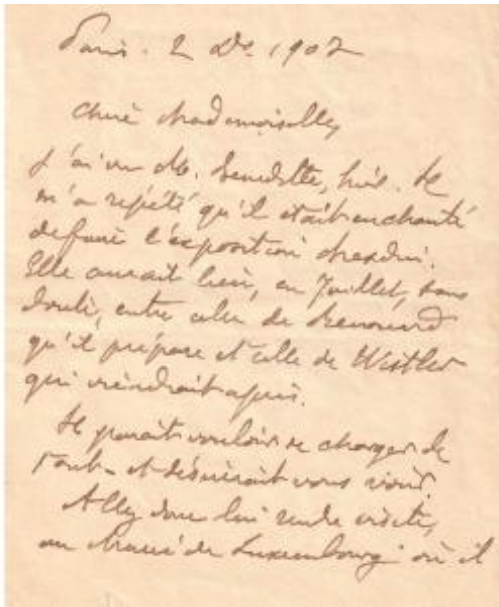 Paris. 2 Dc. 1907
Chère Mademoiselle,
J'ai vu M. Benedite, hier. Il
m'a répété qu'il était enchanté
de faire l'exposition
Elle aurait lieu, en Juillet, sans
doute, entre celle de Renouard
qu'il prépare et celle de Wistler
qui viendrait après.
Il paraît vouloir se charger de
tout et désirerait vous voir.
Allez donc lui rendre visite,
au Musée du Luxembourg où il